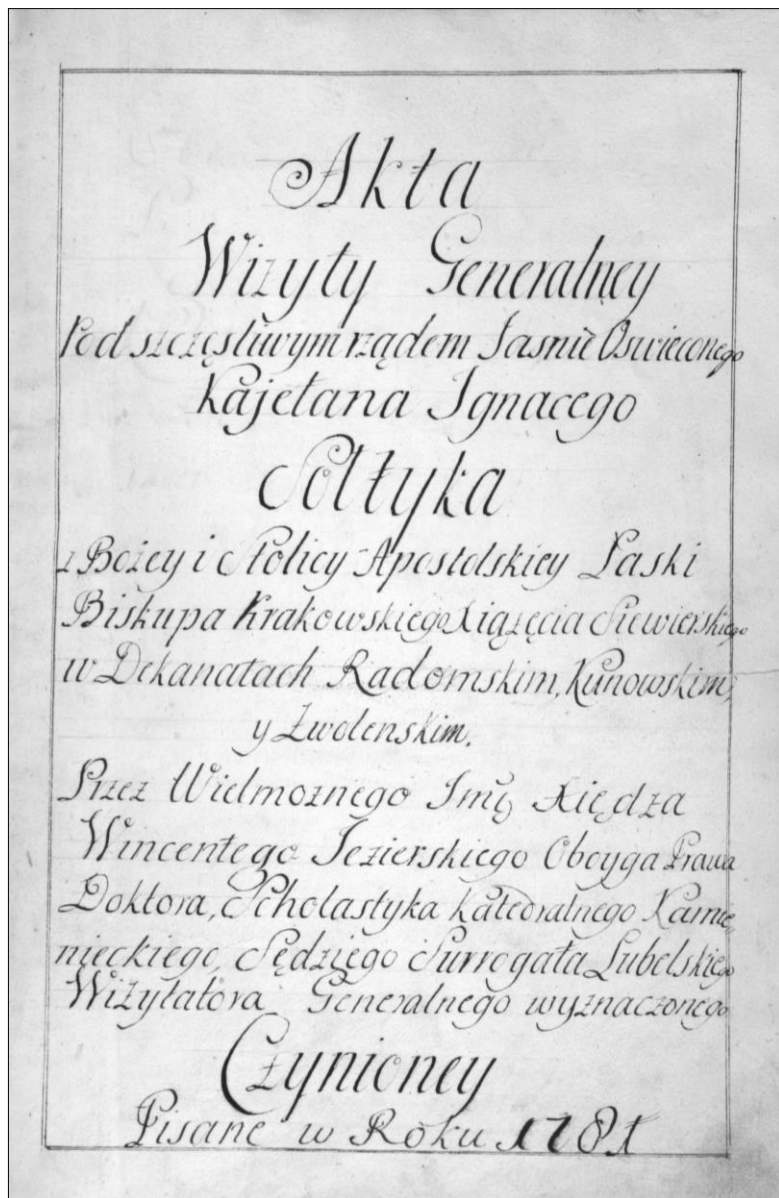 Akta
Wizyty Generalney
Pod szczęsliwym rządem Jasnie Oswieconego
Kajetana Ignacego
Sołtyka
z Bozey i Stolicy Apostolskiey Łaski
Biskupa Krakowskiego Xiążęcia Siewierskiego
w Dekanatach Radomskim, Kunowskim,
y Zwolenskim.
Przez Wielmoznego Jmę Xiędza
Wincentego Jezierskiego Oboyga Prawa
Doktora, Scholastyka Katedralnego Kamie,
nieckiego, Sędziego Surrogata Lubelskiego
Wizytatora Generalnego wyznaczonego
Czynioney
Pisane w Roku 1781